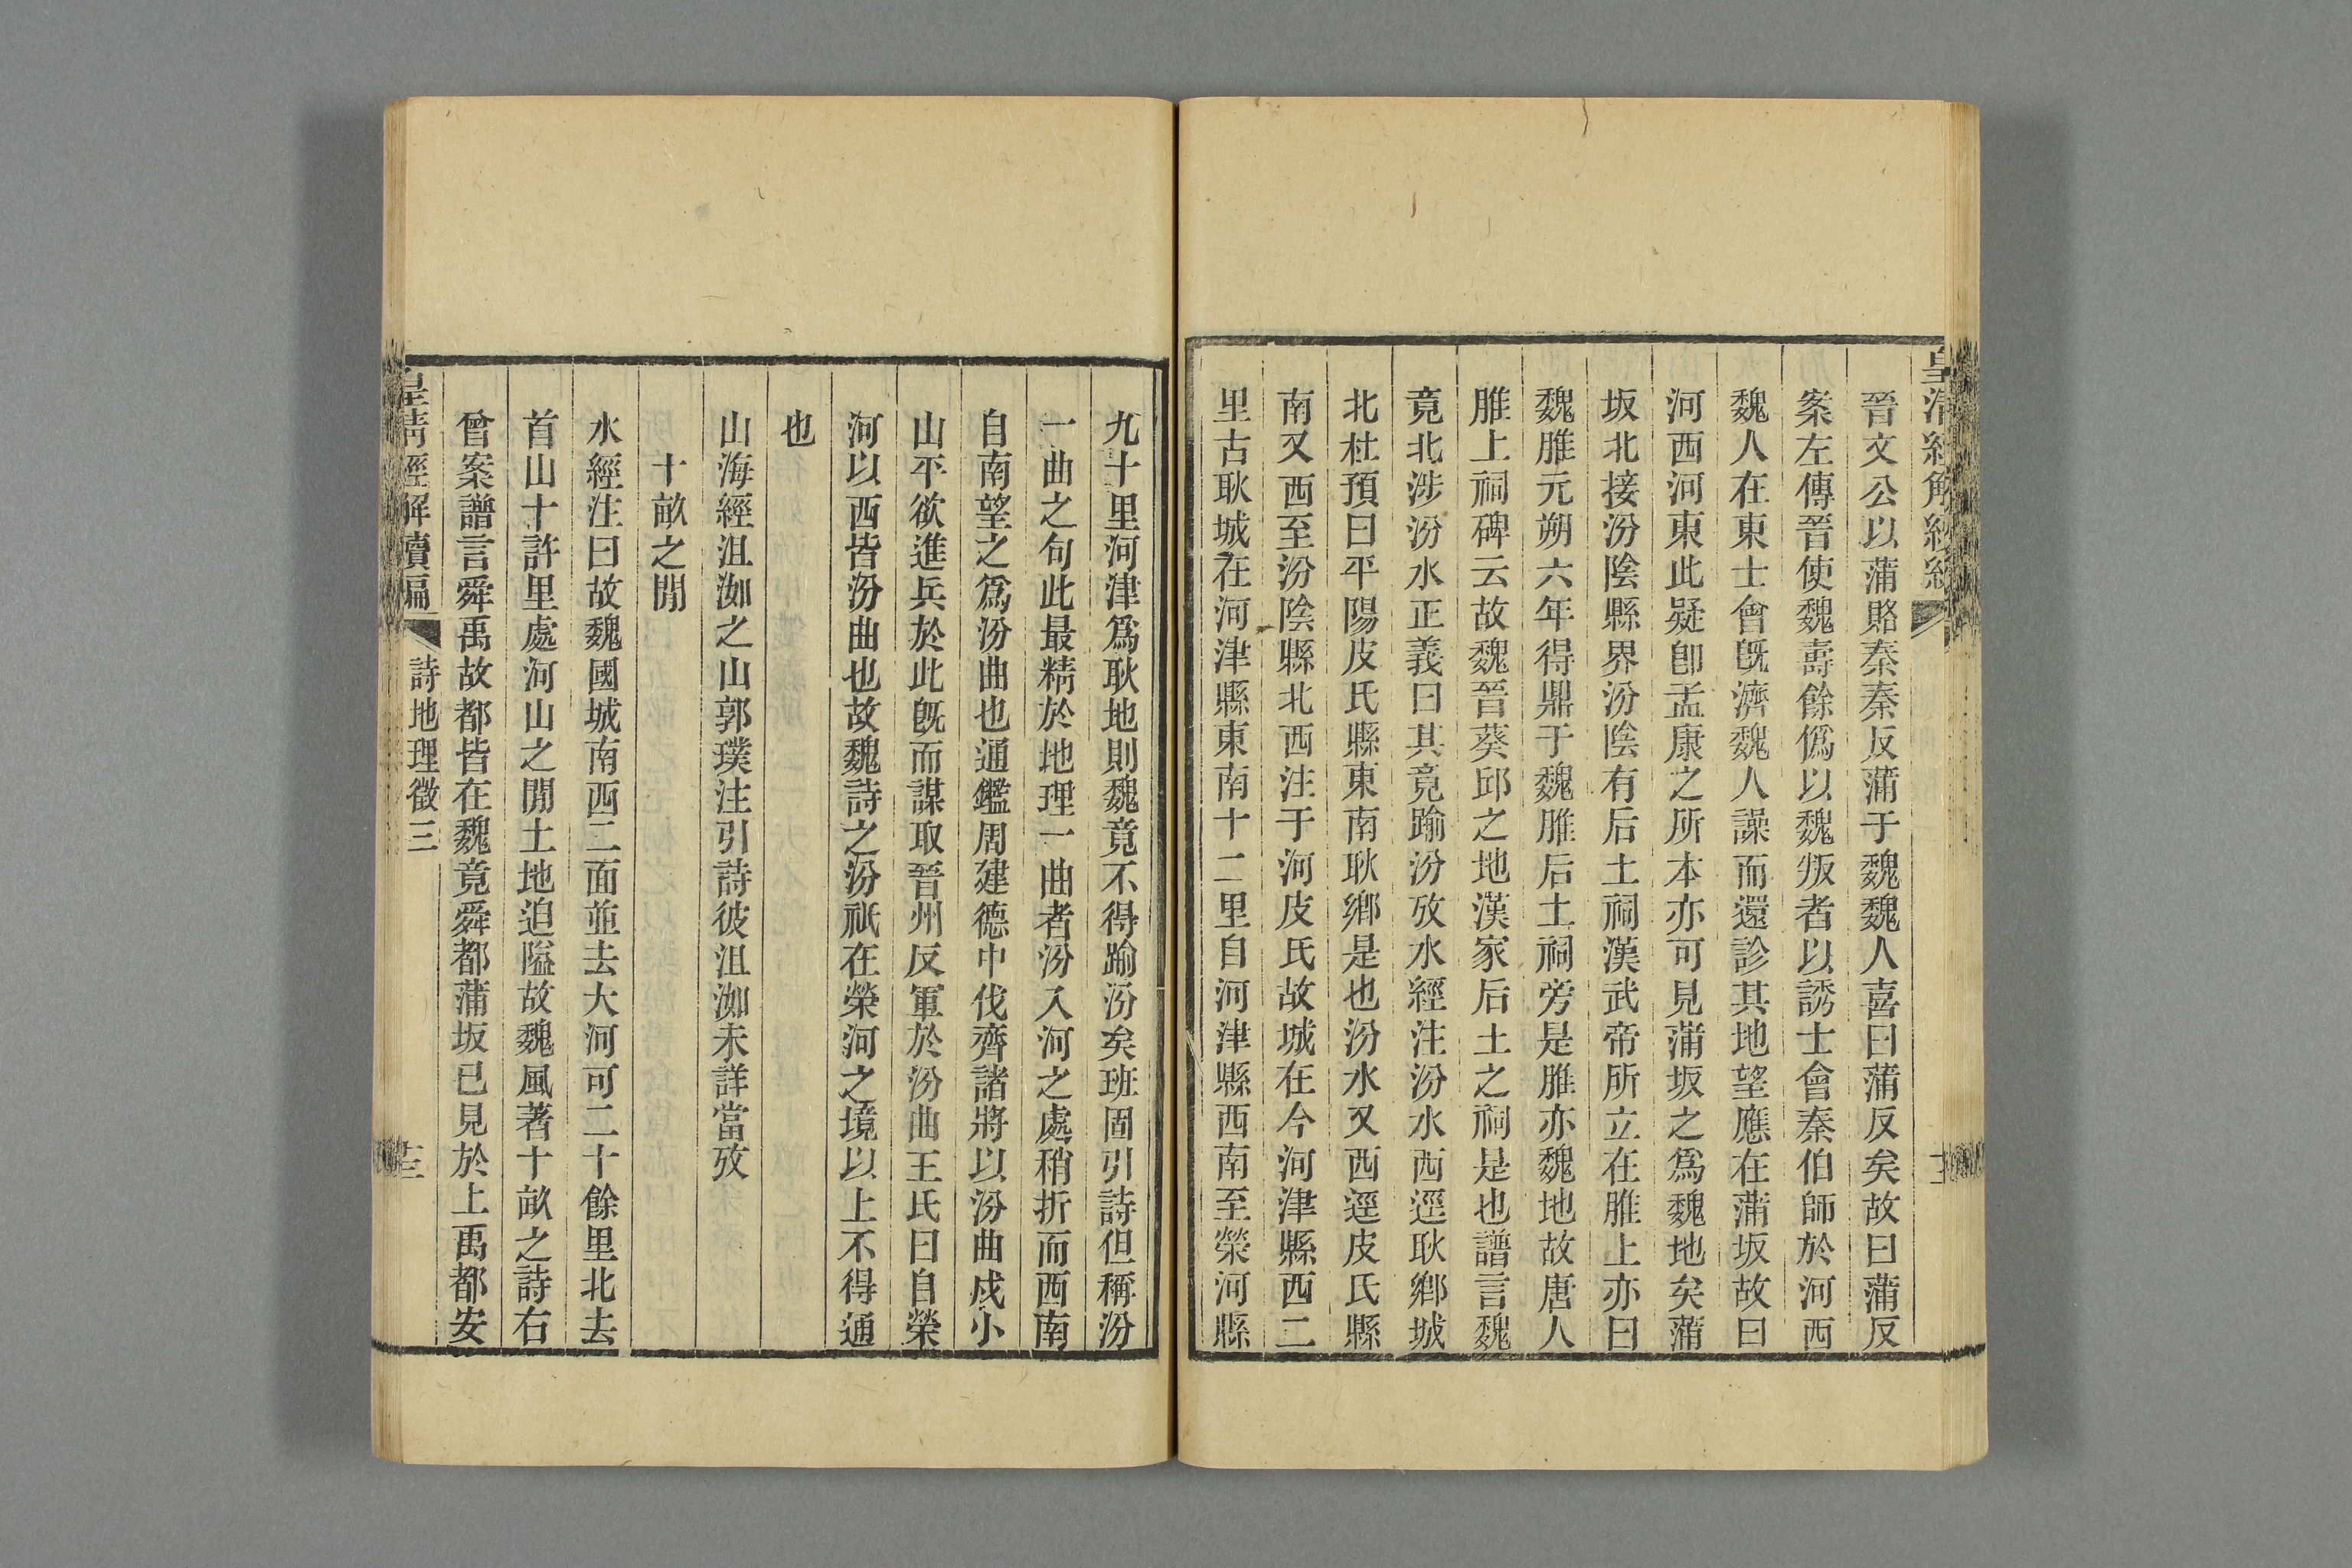 晉文公以蒲賂秦秦反蒲于魏魏人喜曰蒲反矣故曰蒲反
案左傳晉使魏壽餘僞以魏叛者以誘士會秦伯師於河西
魏人在東士會旣濟魏人譟而還診其地望應在蒲坂故曰
河西河東此疑卽孟康之所本亦可見蒲坂之爲魏地矣蒲
坂北接汾陰縣界汾陰有后土祠漢武帝所立在脽上亦曰
魏脽元朔六年得鼎于魏脽后土祠旁是脽亦魏地故唐人
脽上祠碑云故魏晉葵邱之地漢家后土之祠是也譜言魏
竟北涉汾水正義曰其竟踰汾攷水經注汾水西逕耿鄉城
北杜預曰平陽皮氏縣東南耿鄉是也汾水又西逕皮氏縣
南又西至汾陰縣北西注于河皮氏故城在今河津縣西二
里古耿城在河津縣東南十二里自河津縣西南至榮河縣
九十里河津爲耿地則魏竟不得踰汾矣班固引詩但稱汾
一曲之句此最精於地理一曲者汾入河之處稍折而西南
自南望之爲汾曲也通鑑周建德中伐齊諸將以汾曲戍小
山平欲進兵於此旣而謀取晉州反軍於汾曲王氏曰自榮
河以西皆汾曲也故魏詩之汾祇在榮河之境以上不得通
也
山海經沮洳之山郭璞注引詩彼沮洳未詳當攷
十畝之閒
水經注曰故魏國城南西二面並去大河可二十餘里北去
首山十許里處河山之閒土地迫隘故魏風著十畝之詩右
曾案譜言舜禹故都皆在魏竟舜都蒲坂已見於上禹都安
皇清經解續編 詩地理徵三 十三